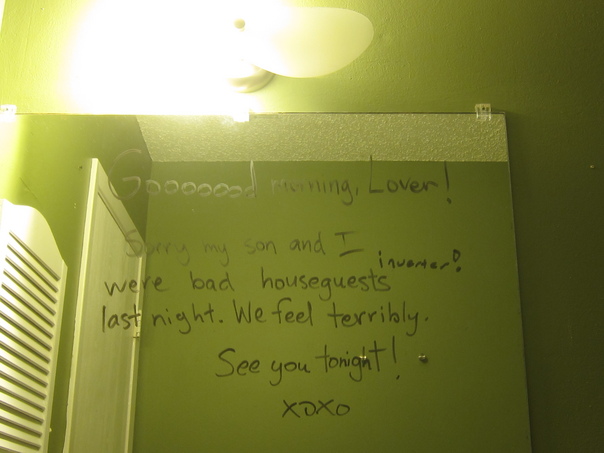 Gooooood morning, Lover!
Sorry my son and I
were bad houseguests
last night. We feel terribly.
See you tonight!
XOXO